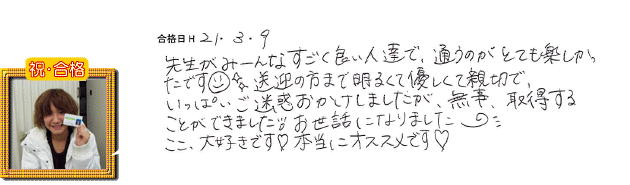 合格日 H 21. 3. 9
祝・合格
先生がみーんなすごく良い人達で、通うのがとても楽しかっ
たです 送迎の方まで明るくて優しくて親切で、
いっぱいご迷惑おかけしましたが、無事、取得する
ことができました!! お世話になりました
ここ、大好きです♡本当にオススメです♡